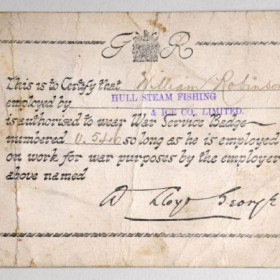 G R
This is to Certify that William Robinson
employed by HULL STEAM FISHING
& ICE CO., LIMITED.
is authorised to wear War Service Badge
numbered so long as he is employed
on work for war purposes by the employer
above named
D Lloyd George